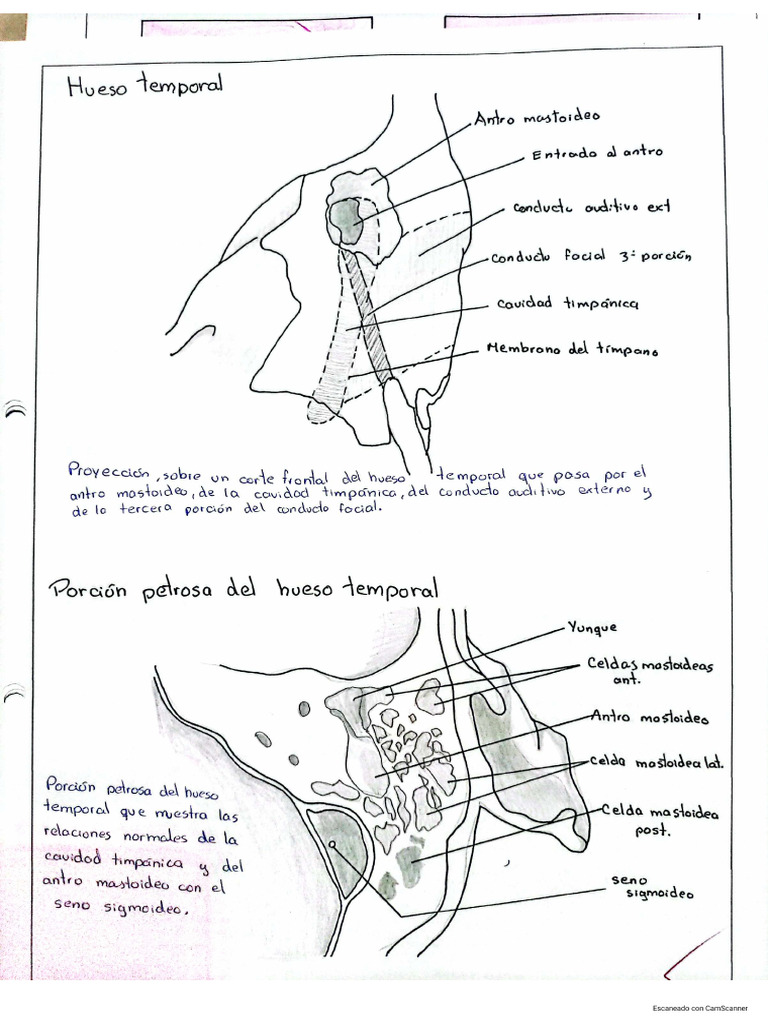 Hueso temporal
Antro mastoideo
Entrada al antro
Conducto auditivo ext
Conducto facial 3ª porción
Cavidad timpánica
Membrana del tímpano
Proyección, sobre un corte frontal del hueso temporal que pasa por el
antro mastoideo, de la cavidad timpánica, del conducto auditivo externo y
de la tercera porción del conducto facial.
Porción petrosa del hueso temporal
Yunque
Celdas mastoideas
ant.
Antro mastoideo
Celda mastoidea lat.
Celda mastoidea
post.
seno
sigmoideo
Porción petrosa del hueso
temporal que muestra las
relaciones normales de la
cavidad timpánica y del
antro mastoideo con el
seno sigmoideo.
Escaneado con CamScanner